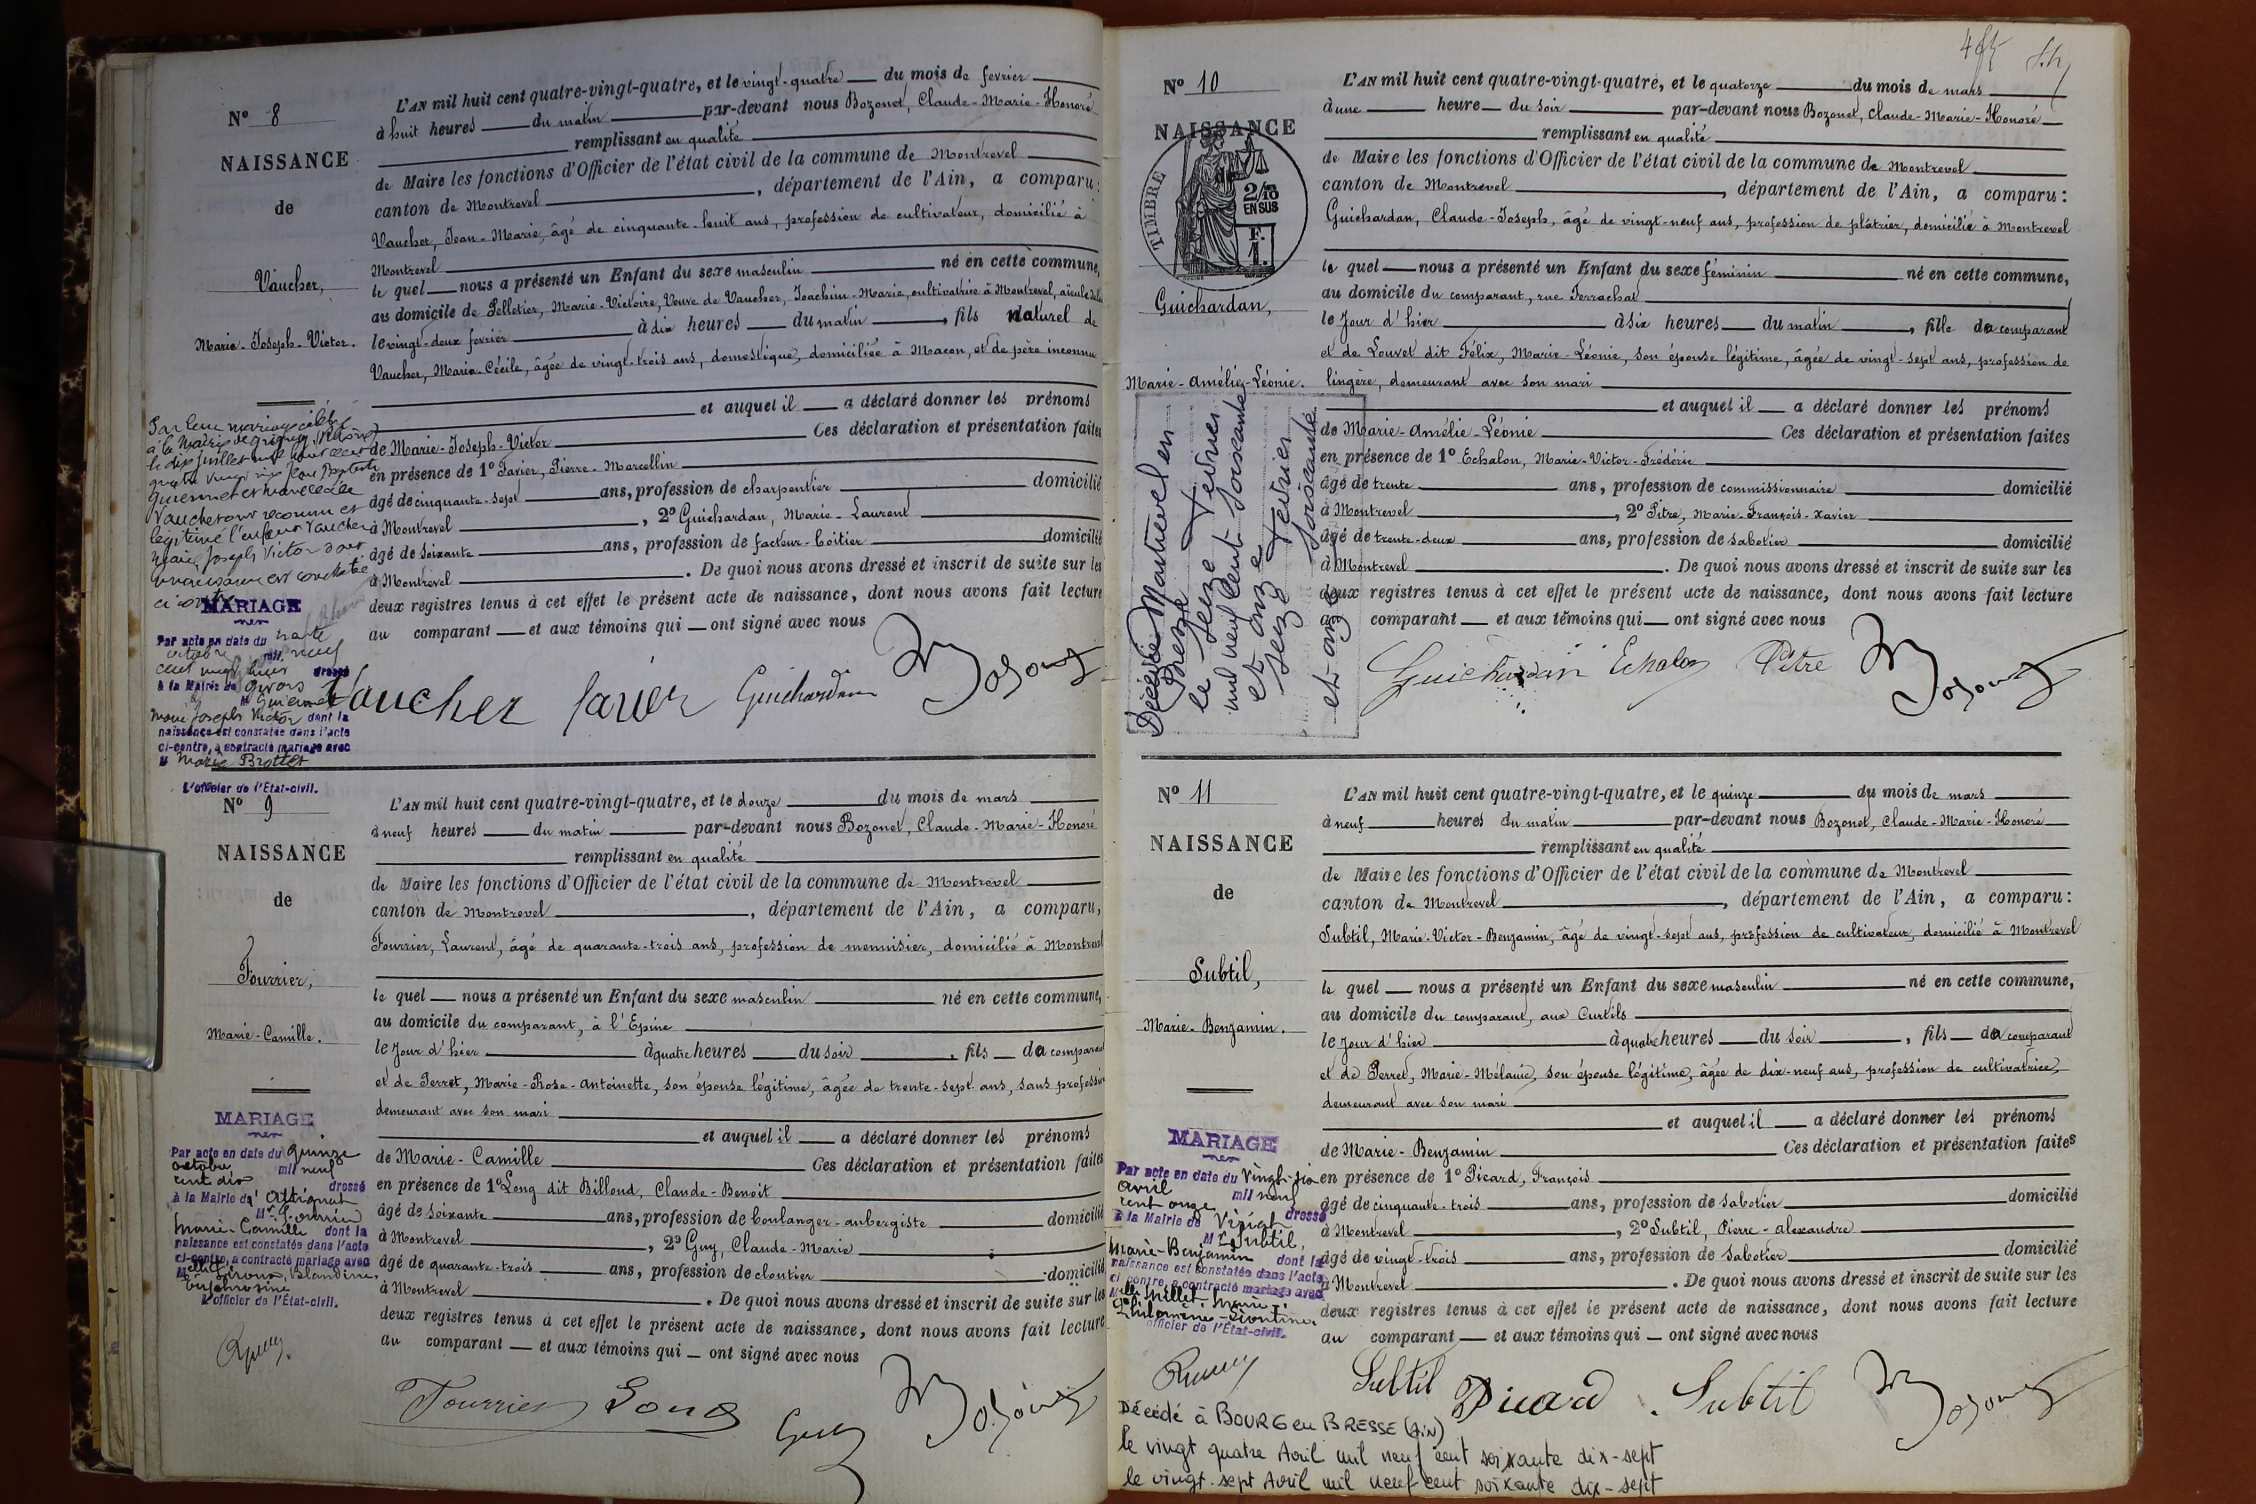 N° 8
NAISSANCE
de
Vaucher,
Marie-Joseph-Victor.
L'AN mil huit cent quatre-vingt-quatre, et le vingt-quatre du mois de fevrier
à huit heures du matin par-devant nous Bozonet, Claude-Marie-Honoré
remplissant en qualité
de Maire les fonctions d'Officier de l'état civil de la commune de Montrevel
canton de Montrevel, département de l'Ain, a comparu:
Vaucher, Jean-Marie, âgé de cinquante-huit ans, profession de cultivateur, domicilié à
Montrevel
le quel nous a présenté un Enfant du sexe masculin né en cette commune,
au domicile de Pelletier, Marie-Victoire, Veuve de Vaucher, Joachim-Marie, cultivatrice à Montrevel, aïeule
le vingt-deux fevrier à dix heures du matin, fils naturel de
Vaucher, Marie-Cécile, âgée de vingt-trois ans, domestique, domiciliée à Macon, et de père inconnu
et auquel il a déclaré donner les prénoms
de Marie-Joseph-Victor Ces déclaration et présentation faites
en présence de 1° Favier, Pierre-Marcellin
âgé de cinquante-sept ans, profession de charpentier domicilié
à Montrevel, 2° Guichardan, Marie-Laurent
âgé de soixante ans, profession de facteur-boitier domicilié
à Montrevel. De quoi nous avons dressé et inscrit de suite sur les
deux registres tenus à cet effet le présent acte de naissance, dont nous avons fait lecture
au comparant et aux témoins qui ont signé avec nous
Vaucher Favier Guichardan Bozonet
Par leur mariage célébré
à la mairie de Grigny (Rhône)
le dix juillet mil huit cent
quatre vingt Jean Baptiste
Guiennet et Marie Cécile
Vaucher ont reconnu et
légitimé l'enfant Vaucher
Marie Joseph Victor dont
la naissance est constatée
ci contre
MARIAGE
Par acte en date du trente
octobre mil neuf
cent vingt huit dressé
à la Mairie de Givors
M Guiennet
Marie Joseph Victor dont la
naissance est constatée dans l'acte
ci-contre, a contracté mariage avec
M Marie Brottet
L'officier de l'Etat-civil.
N° 9
NAISSANCE
de
Fourrier,
Marie-Camille.
L'AN mil huit cent quatre-vingt-quatre, et le douze du mois de mars
à neuf heures du matin par-devant nous Bozonet, Claude-Marie-Honoré
remplissant en qualité
de Maire les fonctions d'Officier de l'état civil de la commune de Montrevel
canton de Montrevel, département de l'Ain, a comparu,
Fourrier, Laurent, âgé de quarante-trois ans, profession de menuisier, domicilié à Montrevel
le quel nous a présenté un Enfant du sexe masculin né en cette commune,
au domicile du comparant, à l'Epine
le jour d'hier à quatre heures du soir, fils du comparant
et de Perret, Marie-Rose-Antoinette, son épouse légitime, âgée de trente-sept ans, sans profession
demeurant avec son mari
et auquel il a déclaré donner les prénoms
de Marie-Camille Ces déclaration et présentation faites
en présence de 1° Long dit Billoud, Claude-Benoit
âgé de soixante ans, profession de boulanger-aubergiste domicilié
à Montrevel, 2° Guy, Claude-Marie
âgé de quarante-trois ans, profession de cloutier domicilié
à Montrevel. De quoi nous avons dressé et inscrit de suite sur les
deux registres tenus à cet effet le présent acte de naissance, dont nous avons fait lecture
au comparant et aux témoins qui ont signé avec nous
Fourrier Long Guy Bozonet
MARIAGE
Par acte en date du quinze
octobre mil neuf
cent dix dressé
à la Mairie d'Attignat
Mr Fourrier
Marie-Camille dont la
naissance est constatée dans l'acte
ci-contre, a contracté mariage avec
Blandine,
Euphrosine
L'officier de l'Etat-civil.
N° 10
NAISSANCE
de
TIMBRE
2/10
EN SUS
F.
1.
Guichardan,
Marie-Amélie-Léonie.
L'AN mil huit cent quatre-vingt-quatre, et le quatorze du mois de mars
à une heure du soir par-devant nous Bozonet, Claude-Marie-Honoré
remplissant en qualité
de Maire les fonctions d'Officier de l'état civil de la commune de Montrevel
canton de Montrevel, département de l'Ain, a comparu:
Guichardan, Claude-Joseph, âgé de vingt-neuf ans, profession de plâtrier, domicilié à Montrevel
le quel nous a présenté un Enfant du sexe féminin né en cette commune,
au domicile du comparant, rue Ferrachat
le jour d'hier à six heures du matin, fille du comparant
et de Louvet dit Félix, Marie-Léonie, son épouse légitime, âgée de vingt-sept ans, profession de
lingère, demeurant avec son mari
et auquel il a déclaré donner les prénoms
de Marie-Amélie-Léonie Ces déclaration et présentation faites
en présence de 1° Echalon, Marie-Victor-Frédéric
âgé de trente ans, profession de commissionnaire domicilié
à Montrevel, 2° Pitre, Marie-François-Xavier
âgé de trente-deux ans, profession de sabotier domicilié
à Montrevel. De quoi nous avons dressé et inscrit de suite sur les
deux registres tenus à cet effet le présent acte de naissance, dont nous avons fait lecture
au comparant et aux témoins qui ont signé avec nous
Guichardan Echalon Pitre Bozonet
Décédée Montrevel en
Bresse
le seize Février
mil neuf cent soixante
et onze
seize Février
soixante
et onze
N° 11
NAISSANCE
de
Subtil,
Marie-Benjamin.
L'AN mil huit cent quatre-vingt-quatre, et le quinze du mois de mars
à neuf heures du matin par-devant nous Bozonet, Claude-Marie-Honoré
remplissant en qualité
de Maire les fonctions d'Officier de l'état civil de la commune de Montrevel
canton de Montrevel, département de l'Ain, a comparu:
Subtil, Marie-Victor-Benjamin, âgé de vingt-sept ans, profession de cultivateur, domicilié à Montrevel
le quel nous a présenté un Enfant du sexe masculin né en cette commune,
au domicile du comparant, aux Curtils
le jour d'hier à quatre heures du soir, fils du comparant
et de Perret, Marie-Mélanie, son épouse légitime, âgée de dix-neuf ans, profession de cultivatrice,
demeurant avec son mari
et auquel il a déclaré donner les prénoms
de Marie-Benjamin Ces déclaration et présentation faites
en présence de 1° Picard, François
âgé de cinquante-trois ans, profession de sabotier domicilié
à Montrevel, 2° Subtil, Pierre-alexandre
âgé de vingt-trois ans, profession de sabotier domicilié
à Montrevel. De quoi nous avons dressé et inscrit de suite sur les
deux registres tenus à cet effet le présent acte de naissance, dont nous avons fait lecture
au comparant et aux témoins qui ont signé avec nous
Subtil Picard Subtil Bozonet
MARIAGE
Par acte en date du Vingt-six
avril mil neuf
cent onze dressé
à la Mairie de Viriat
Mr Subtil,
Marie-Benjamin dont la
naissance est constatée dans l'acte
ci contre, a contracté mariage avec
Melle Millet, Marie-
Philomène-Léontine
officier de l'Etat-civil.
Décédé à BOURG en BRESSE (Ain)
le vingt quatre Avril mil neuf cent soixante dix-sept
le vingt-sept Avril mil neuf cent soixante dix-sept